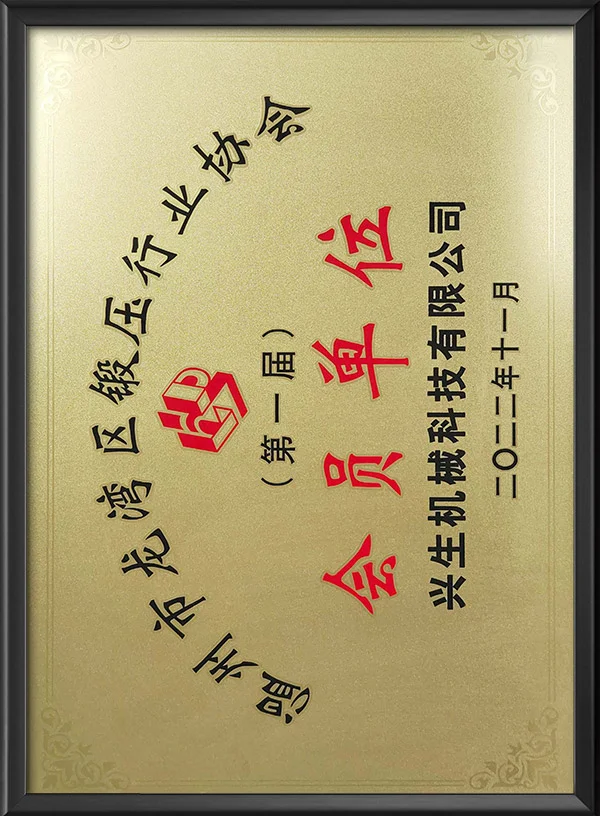 温州市龙湾区锻压行业协会
（第一届）
会员单位
兴生机械科技有限公司
二〇二二年十一月